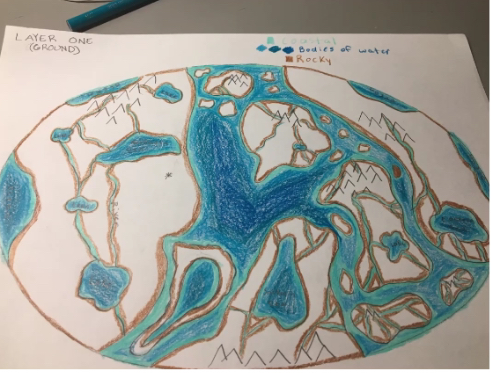 LAYER ONE
(GROUND)
COASTAL
Bodies of water
Rocky